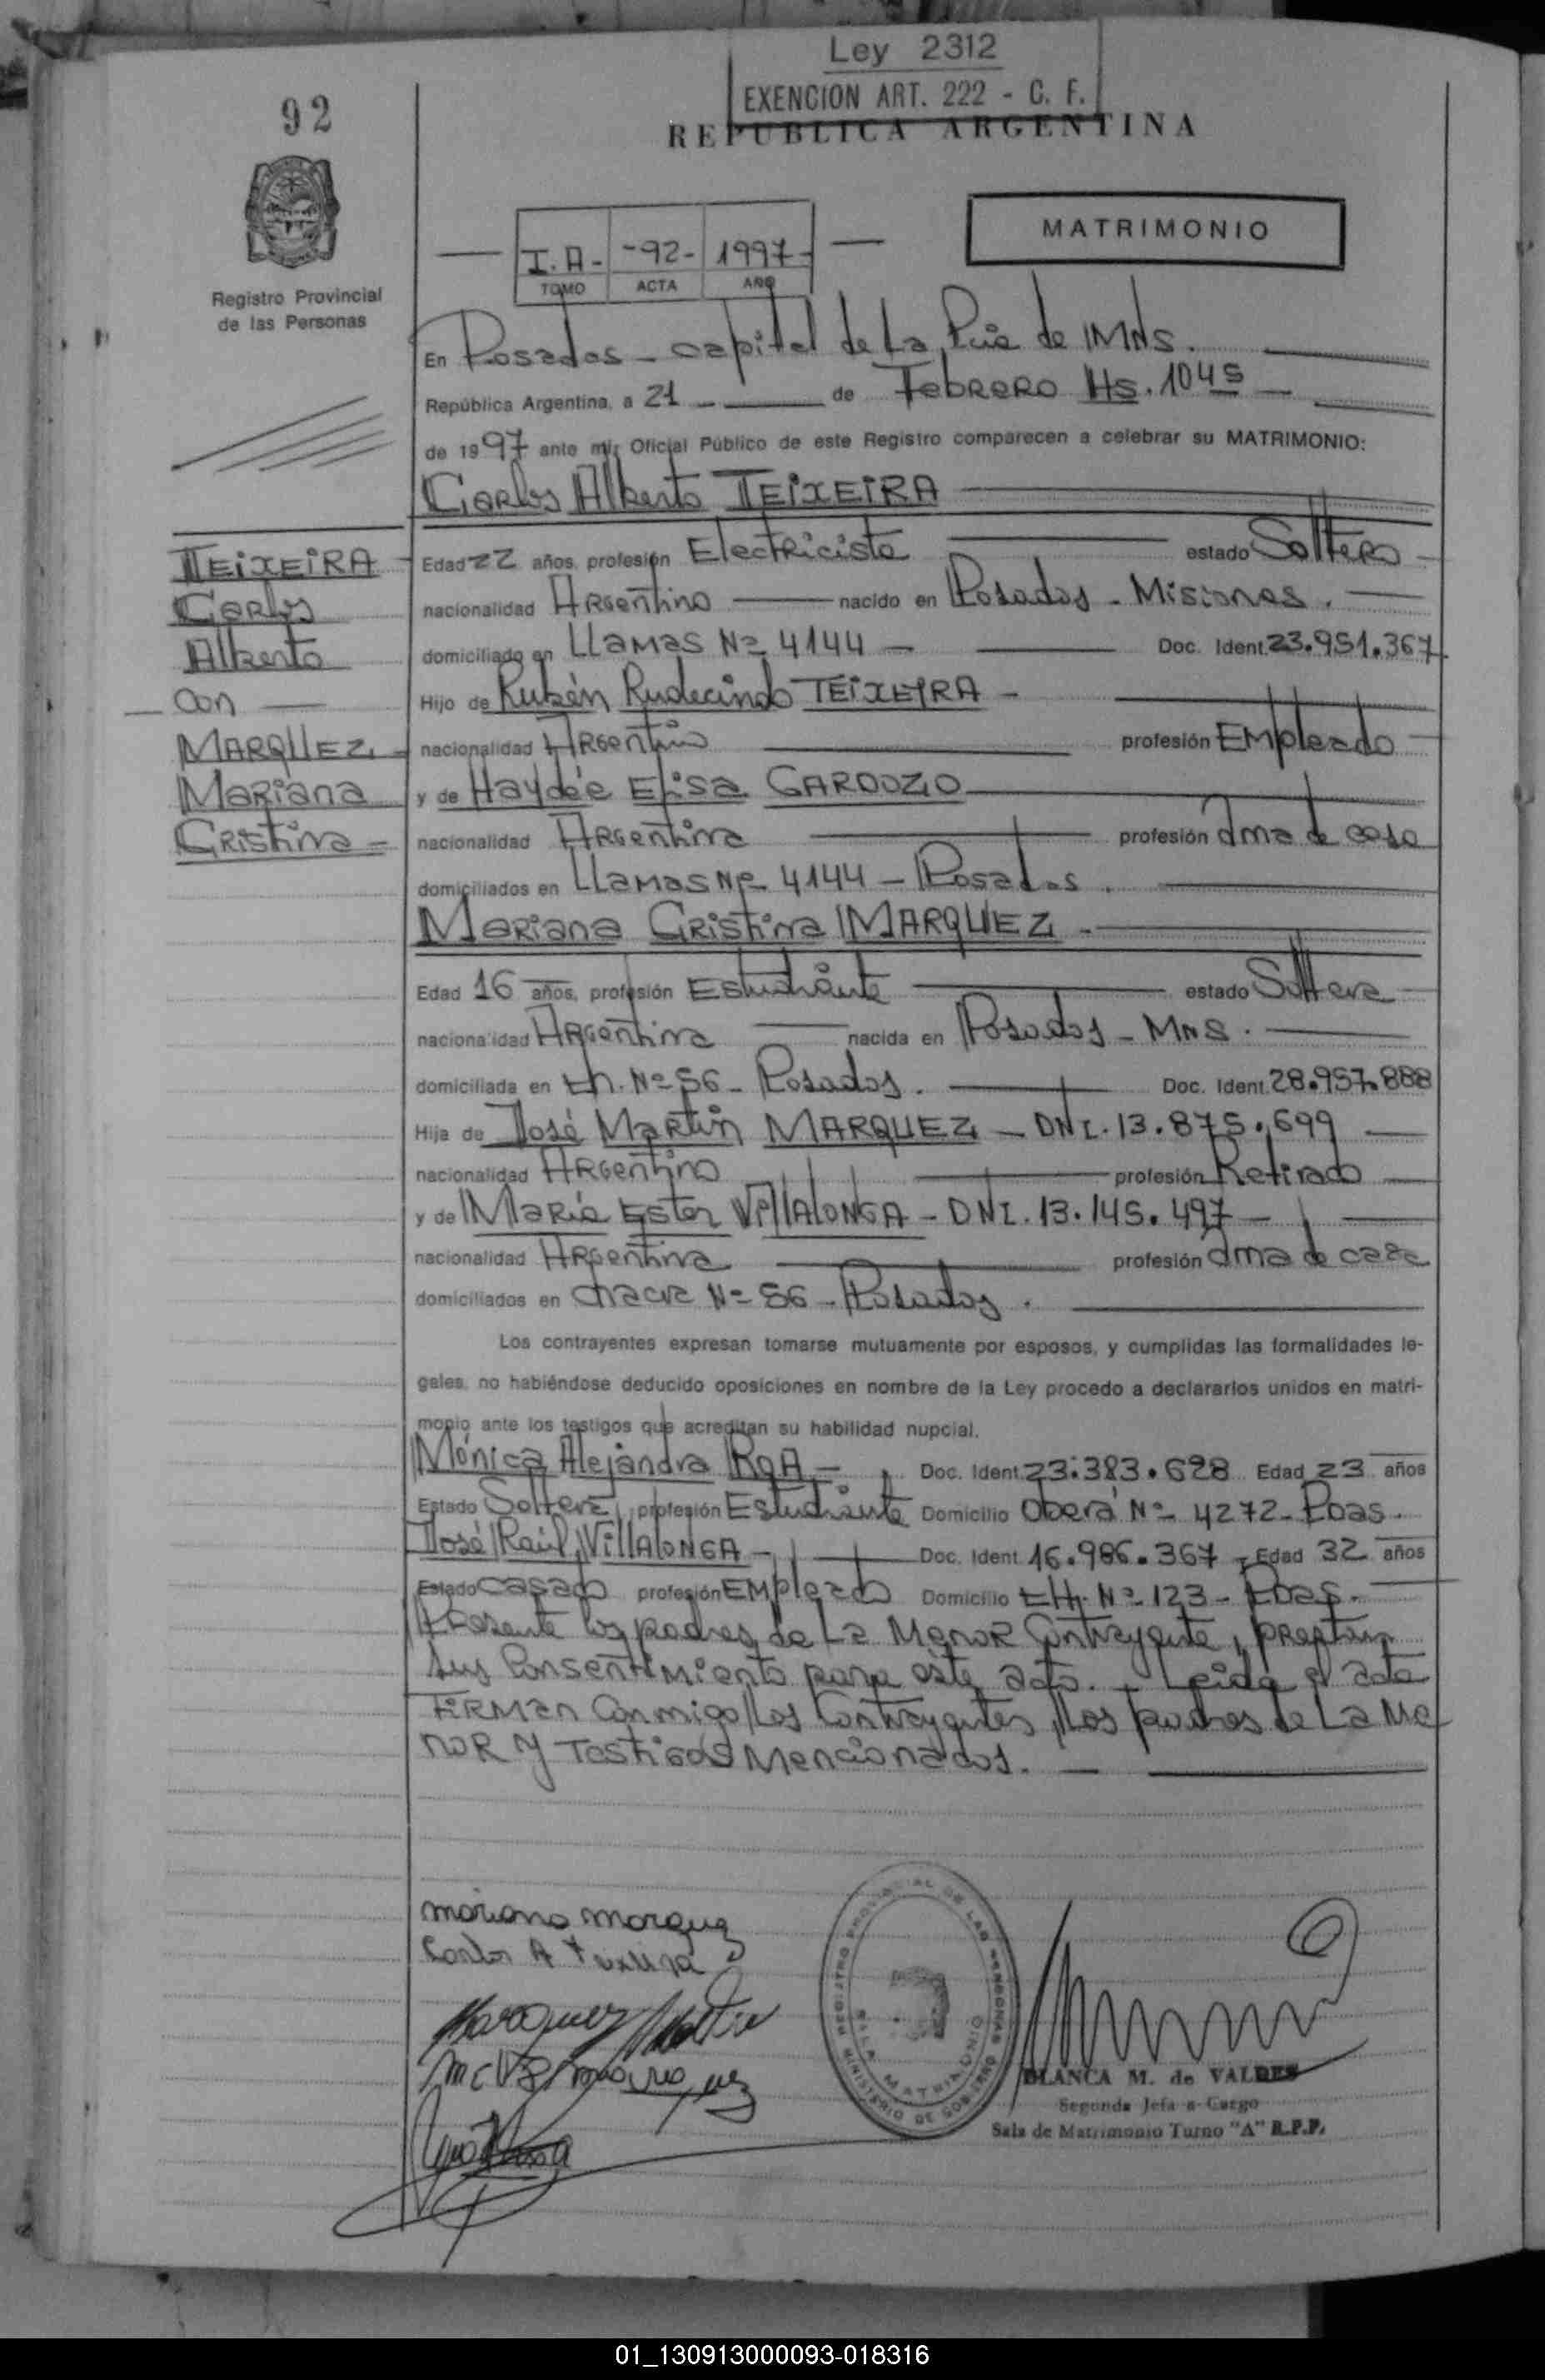 Ley 2312
EXENCION ART. 222 - C. F.
92
REPUBLICA ARGENTINA
MATRIMONIO
I. A - -92- 1997-
TOMO ACTA AÑO
Registro Provincial
de las Personas
En Posadas - capital de La Pcia de MNS.
República Argentina, a 21 - de Febrero Hs. 1045
de 1997 ante mi, Oficial Público de este Registro comparecen a celebrar su MATRIMONIO:
Carlos Alberto TEIXEIRA
TEIXEIRA
Carlos
Alberto
con
MARQUEZ
Mariana
Cristina
Edad 22 años, profesión Electricista estado Soltero
nacionalidad Argentino nacido en Posadas - Misiones.
domiciliado en LLamas Nº 4144 - Doc. Ident. 23.951.367
Hijo de Rubén Rudecindo TEIXEIRA -
nacionalidad Argentino profesión Empleado
y de Haydée Elisa CARDOZO
nacionalidad Argentina profesión ama de casa
domiciliados en LLamas Nº 4144 - Posadas.
Mariana Cristina MARQUEZ -
Edad 16 años, profesión Estudiante estado Soltera
nacionalidad Argentina nacida en Posadas - MNS.
domiciliada en Ch. Nº 56 - Posados. Doc. Ident. 28.957.888
Hija de José Martin MARQUEZ - DNI. 13.875.699
nacionalidad Argentino profesión Retirado
y de María Ester VILLALONGA - DNI. 13.145.497 -
nacionalidad Argentina profesión ama de casa
domiciliados en chacra Nº 56 - Posadas.
Los contrayentes expresan tomarse mutuamente por esposos, y cumplidas las formalidades le-
gales, no habiéndose deducido oposiciones en nombre de la Ley procedo a declararlos unidos en matri-
monio ante los testigos que acreditan su habilidad nupcial.
Mónica Alejandra ROA - Doc. Ident. 23.383.628 Edad 23 años
Estado Soltera profesión Estudiante Domicilio Oberá Nº 4272 - Pdas.
José Raúl VILLALONGA - Doc. Ident. 16.986.367 - Edad 32 años
Estado casado profesión Empleado Domicilio CH. Nº 123 - Pdas.
Presente los padres de La Menor Contrayente, prestan
sus Consentimiento para este acto. - Leida el acta
Firman Conmigo Los Contrayentes, Los padres de La Me
nor y Testigos Mencionados.
mariana marquez
Carlos A Teixeira
Marquez Martin
REGISTRO PROVINCIAL DE LAS PERSONAS
MINISTERIO DE GOBIERNO
SALA MATRIMONIO
BLANCA M. de VALDES
Segunda Jefa a Cargo
Sala de Matrimonio Turno "A" R.P.P.
01_130913000093-018316